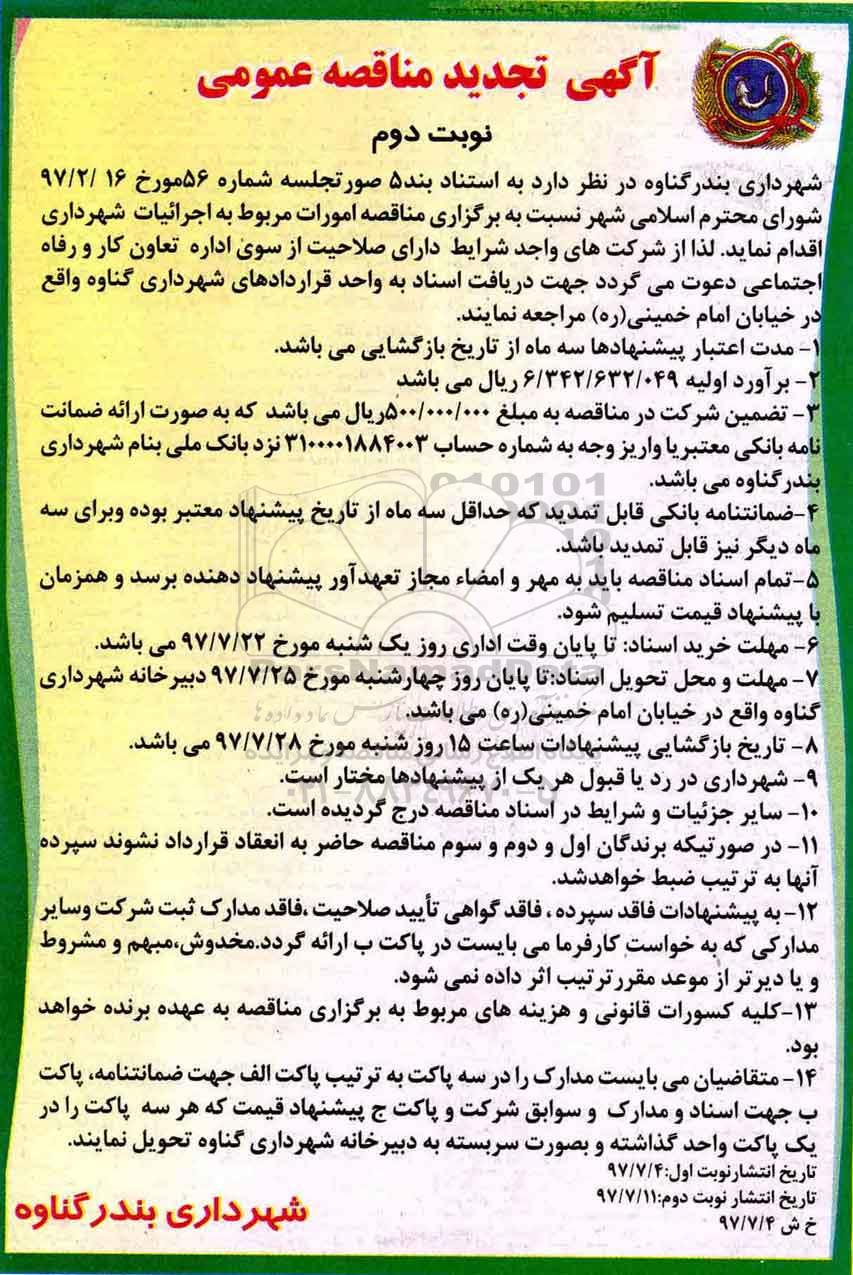 آگهی تجدید مناقصه عمومی
نوبت دوم
شهرداری بندرگناوه در نظر دارد به استناد بند۵ صورتجلسه شماره ۵۶مورخ ۱۶ /۹۷/۲
شورای محترم اسلامی شهر نسبت به برگزاری مناقصه امورات مربوط به اجرائیات شهرداری
اقدام نماید. لذا از شرکت های واجد شرایط دارای صلاحیت از سوی اداره تعاون کار و رفاه
اجتماعی دعوت می گردد جهت دریافت اسناد به واحد قراردادهای شهرداری گناوه واقع
در خیابان امام خمینی(ره) مراجعه نمایند.
۱- مدت اعتبار پیشنهادها سه ماه از تاریخ بازگشایی می باشد.
۲- برآورد اولیه ۶/۳۴۲/۶۳۲/۰۴۹ ریال می باشد
۳- تضمین شرکت در مناقصه به مبلغ ۵۰۰/۰۰۰/۰۰۰ریال می باشد که به صورت ارائه ضمانت
نامه بانکی معتبریا واریز وجه به شماره حساب ۳۱۰۰۰۰۱۸۸۴۰۰۳ نزد بانک ملی بنام شهرداری
بندرگناوه می باشد.
۴-ضمانتنامه بانکی قابل تمدید که حداقل سه ماه از تاریخ پیشنهاد معتبر بوده وبرای سه
ماه دیگر نیز قابل تمدید باشد.
۵-تمام اسناد مناقصه باید به مهر و امضاء مجاز تعهدآور پیشنهاد دهنده برسد و همزمان
با پیشنهاد قیمت تسلیم شود.
۶- مهلت خرید اسناد: تا پایان وقت اداری روز یک شنبه مورخ ۹۷/۷/۲۲ می باشد.
۷- مهلت و محل تحویل اسناد:تا پایان روز چهارشنبه مورخ ۹۷/۷/۲۵ دبیرخانه شهرداری
گناوه واقع در خیابان امام خمینی(ره) می باشد.
۸- تاریخ بازگشایی پیشنهادات ساعت ۱۵ روز شنبه مورخ ۹۷/۷/۲۸ می باشد.
۹- شهرداری در رد یا قبول هر یک از پیشنهادها مختار است.
۱۰- سایر جزئیات و شرایط در اسناد مناقصه درج گردیده است.
۱۱- در صورتیکه برندگان اول و دوم و سوم مناقصه حاضر به انعقاد قرارداد نشوند سپرده
آنها به ترتیب ضبط خواهدشد.
۱۲- به پیشنهادات فاقد سپرده ، فاقد گواهی تأیید صلاحیت ،فاقد مدارک ثبت شرکت وسایر
مدارکی که به خواست کارفرما می بایست در پاکت ب ارائه گردد.مخدوش،مبهم و مشروط
و یا دیرتر از موعد مقررترتیب اثر داده نمی شود.
۱۳-کلیه کسورات قانونی و هزینه های مربوط به برگزاری مناقصه به عهده برنده خواهد
بود.
۱۴- متقاضیان می بایست مدارک را در سه پاکت به ترتیب پاکت الف جهت ضمانتنامه، پاکت
ب جهت اسناد و مدارک و سوابق شرکت و پاکت ج پیشنهاد قیمت که هر سه پاکت را در
یک پاکت واحد گذاشته و بصورت سربسته به دبیرخانه شهرداری گناوه تحویل نمایند.
تاریخ انتشارنوبت اول:۹۷/۷/۴
تاریخ انتشار نوبت دوم:۹۷/۷/۱۱
خ ش ۹۷/۷/۴
شهرداری بندرگناوه
ParsNamadData